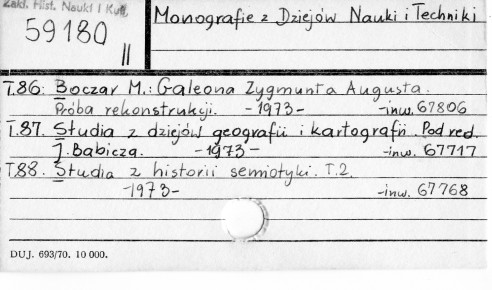 Zakł. Hist. Nauki i Kult.
59180
II
Monografie z Dziejów Nauki i Techniki
T.86. Boczar M.: Galeona Zygmunta Augusta.
Próba rekonstrukcji. -1973- -inw. 67806
T.87. Studia z dziejów geografii i kartografii. Pod red.
J. Babicza. -1973- -inw. 67717
T.88. Studia z historii semiotyki. T.2.
-1973- -inw. 67768
DUJ. 693/70. 10 000.